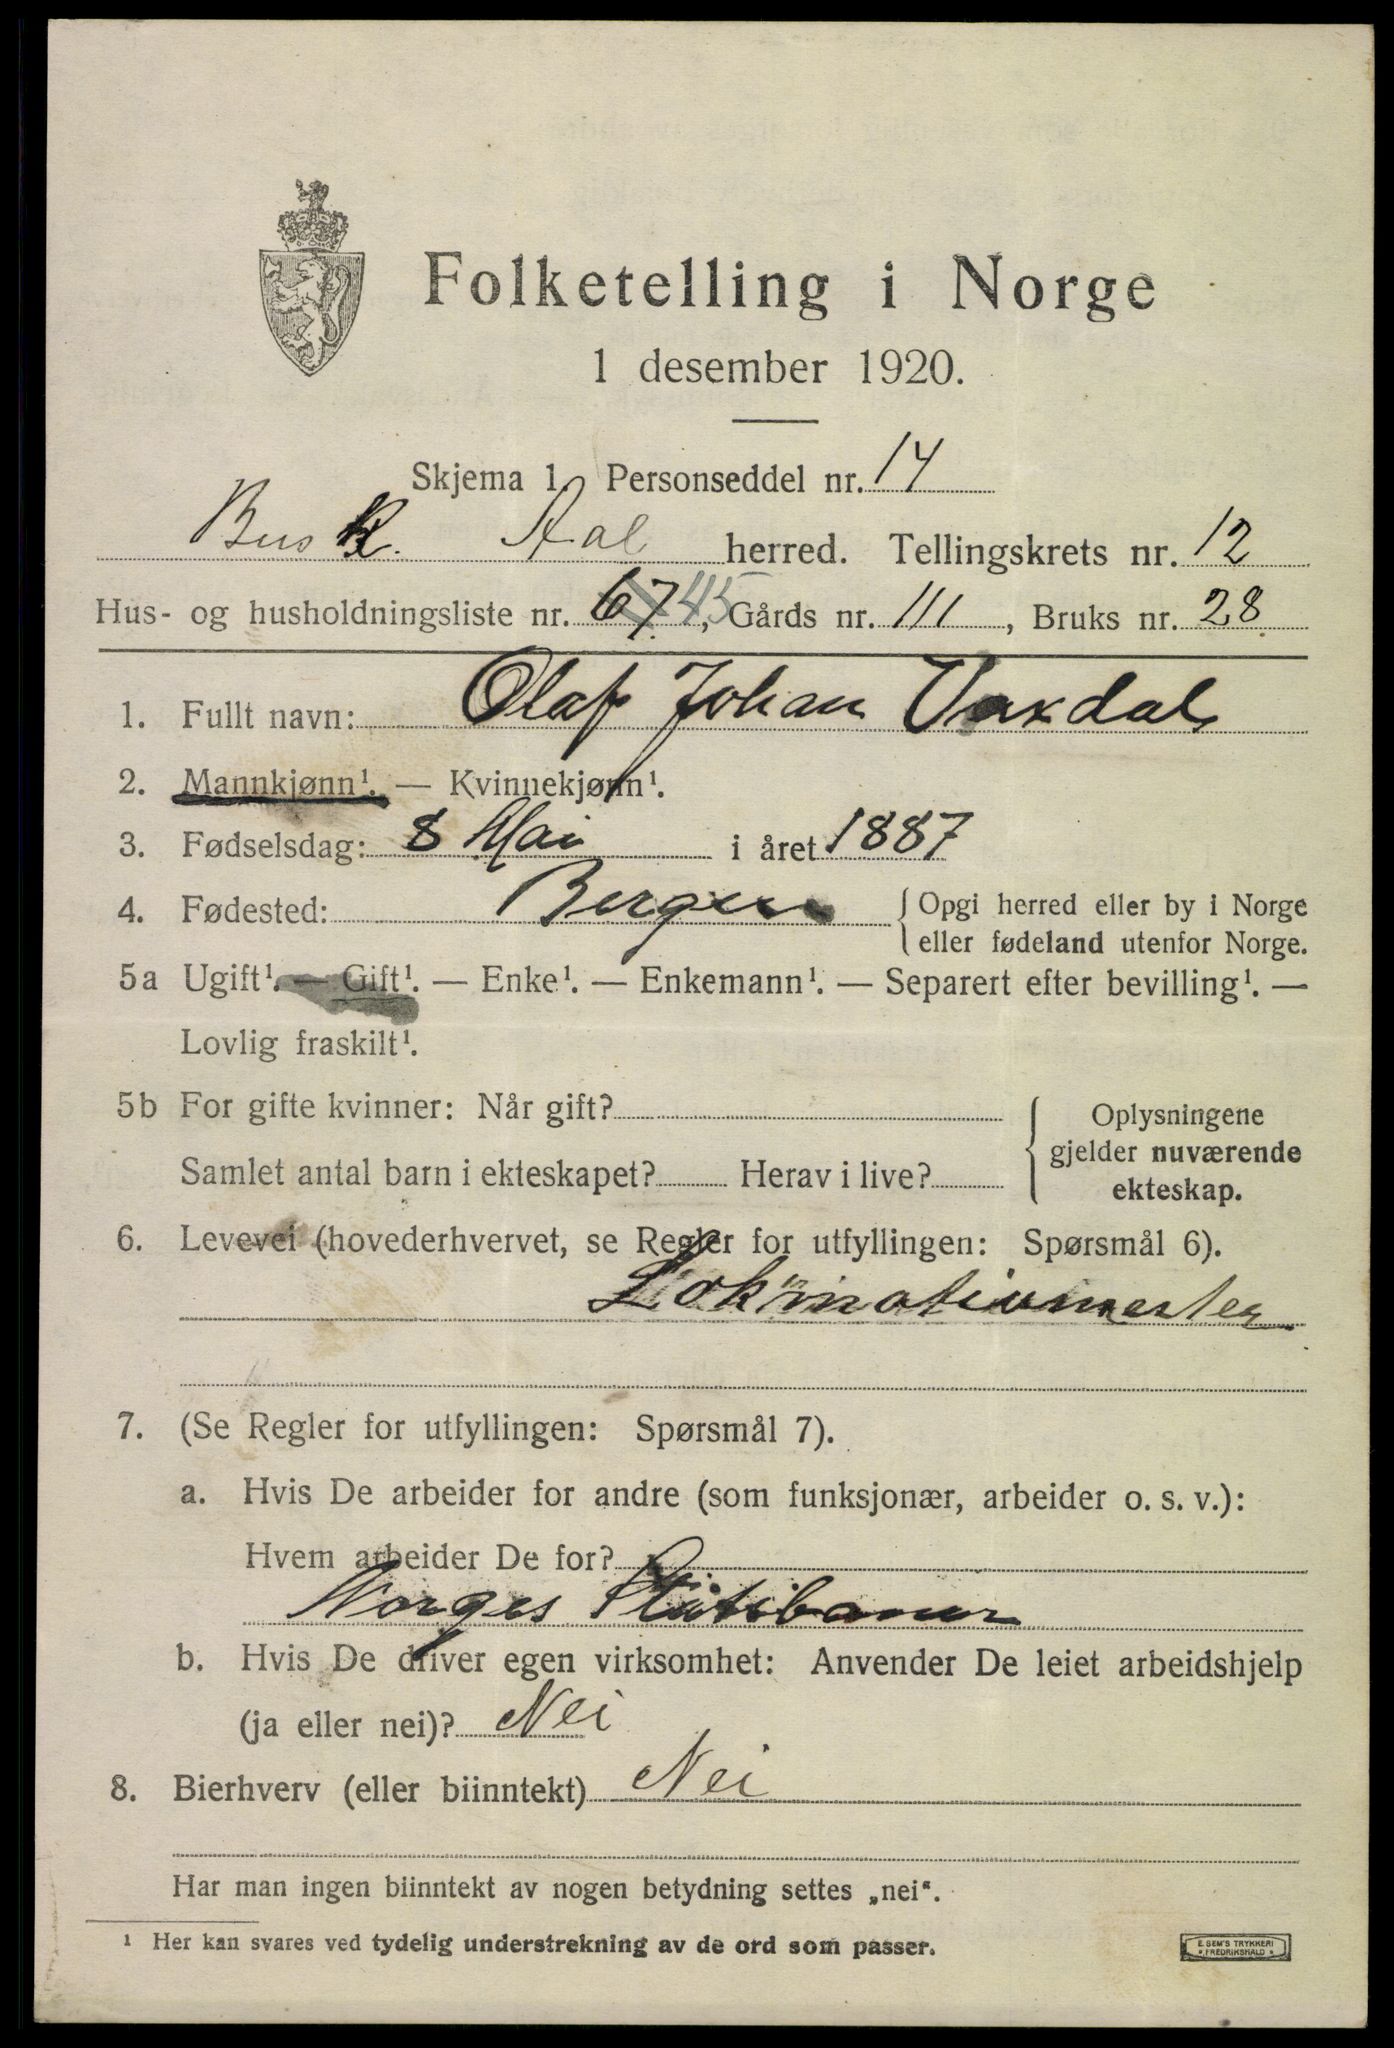 Folketelling i Norge
1 desember 1920.
Skjema 1. Personseddel nr. 14
Busk. Aal herred. Tellingskrets nr. 12
Hus- og husholdningsliste nr. 67 45, Gårds nr. 111, Bruks nr. 28
1. Fullt navn: Olaf Johan Vaxdal
2. Mannkjønn¹. — Kvinnekjønn¹.
3. Fødselsdag: 8 Mai i året 1887
4. Fødested: Bergen { Opgi herred eller by i Norge
eller fødeland utenfor Norge.
5a Ugift¹. — Gift¹. — Enke¹. — Enkemann¹. — Separert efter bevilling¹. —
Lovlig fraskilt¹.
5b For gifte kvinner: Når gift?
Samlet antal barn i ekteskapet? Herav i live?
{ Oplysningene
gjelder nuværende
ekteskap.
6. Levevei (hovederhvervet, se Regler for utfyllingen: Spørsmål 6).
Lokomotivmester
7. (Se Regler for utfyllingen: Spørsmål 7).
a. Hvis De arbeider for andre (som funksjonær, arbeider o. s. v.):
Hvem arbeider De for?
Norges Statsbaner
b. Hvis De driver egen virksomhet: Anvender De leiet arbeidshjelp
(ja eller nei)? Nei
8. Bierhverv (eller biinntekt) Nei
Har man ingen biinntekt av nogen betydning settes „nei“.
¹ Her kan svares ved tydelig understrekning av de ord som passer.
E. SEM'S TRYKKERI
* FREDRIKSHALD *